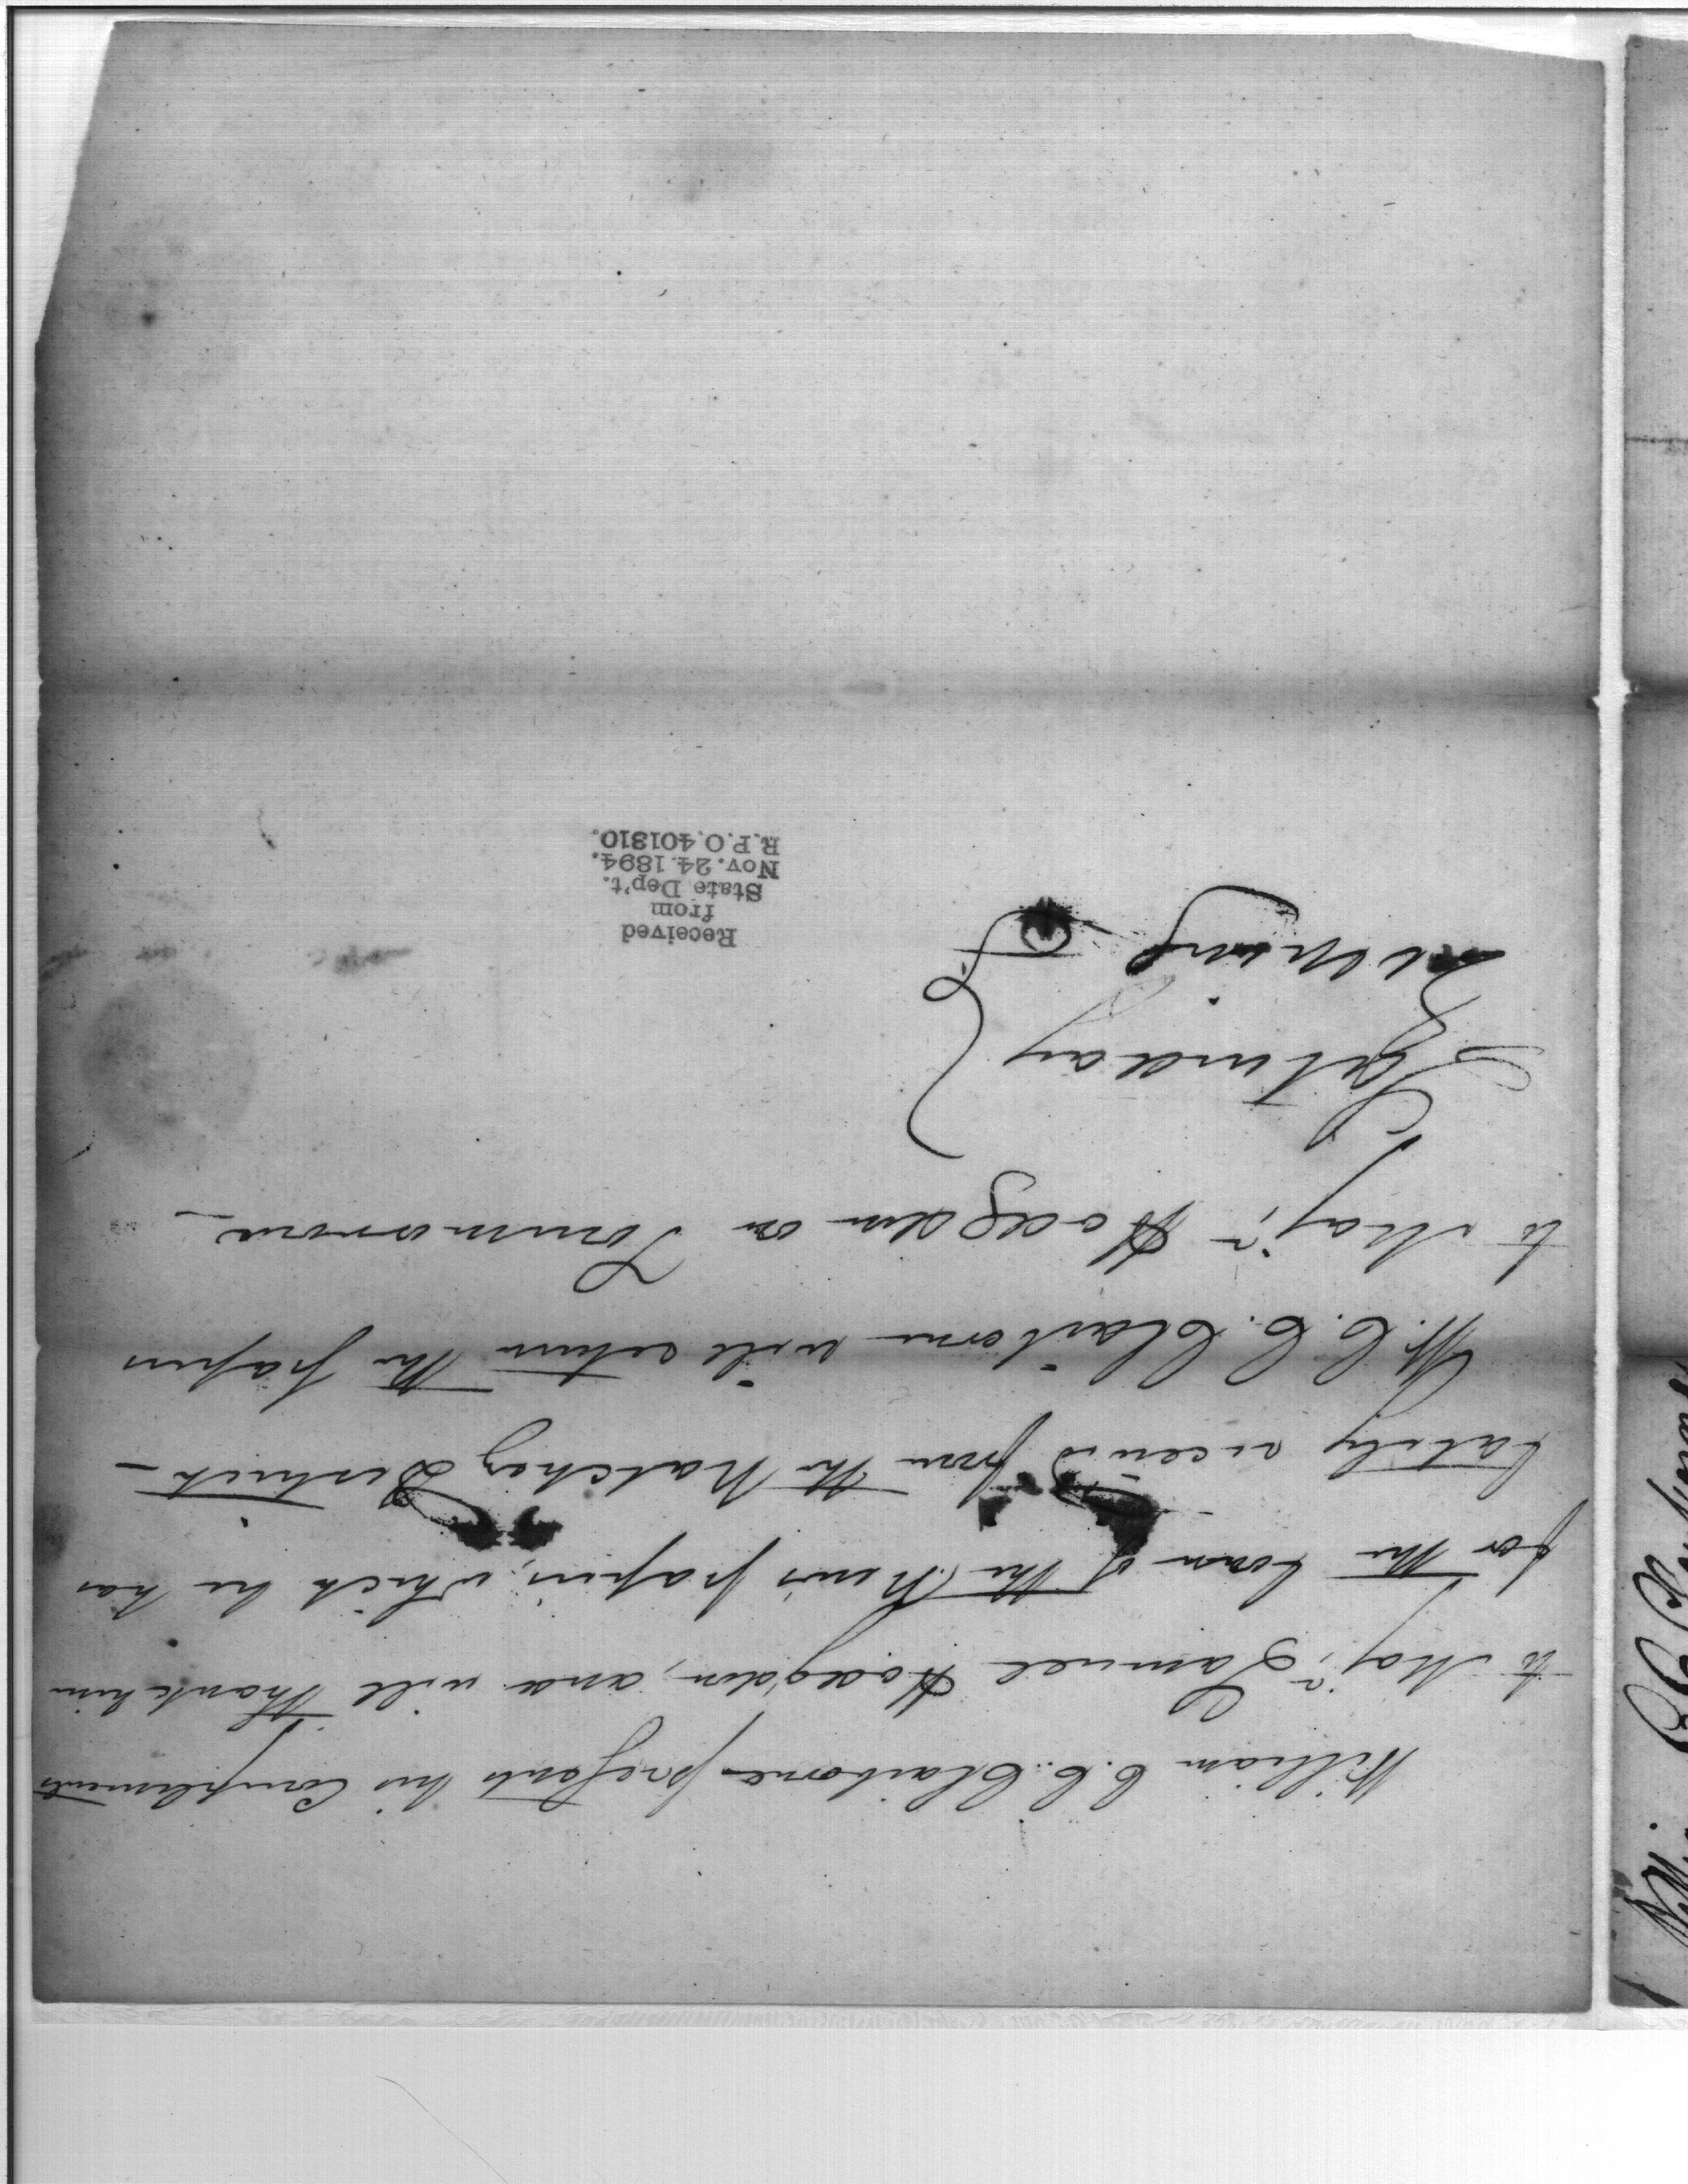 William C. C. Claiborne presents his Compliments
to Majr. Samuel Hodgdon, and will thank him
for the loan of the News papers, which he has
lately receiv'd from the Natchez District —
W. C. C. Claiborne will return the papers
to Majr. Hodgdon on Tommorrow —
Saturday
Evening
Received
from
State Dep't.
Nov. 24. 1894.
R.P.O. 401310.